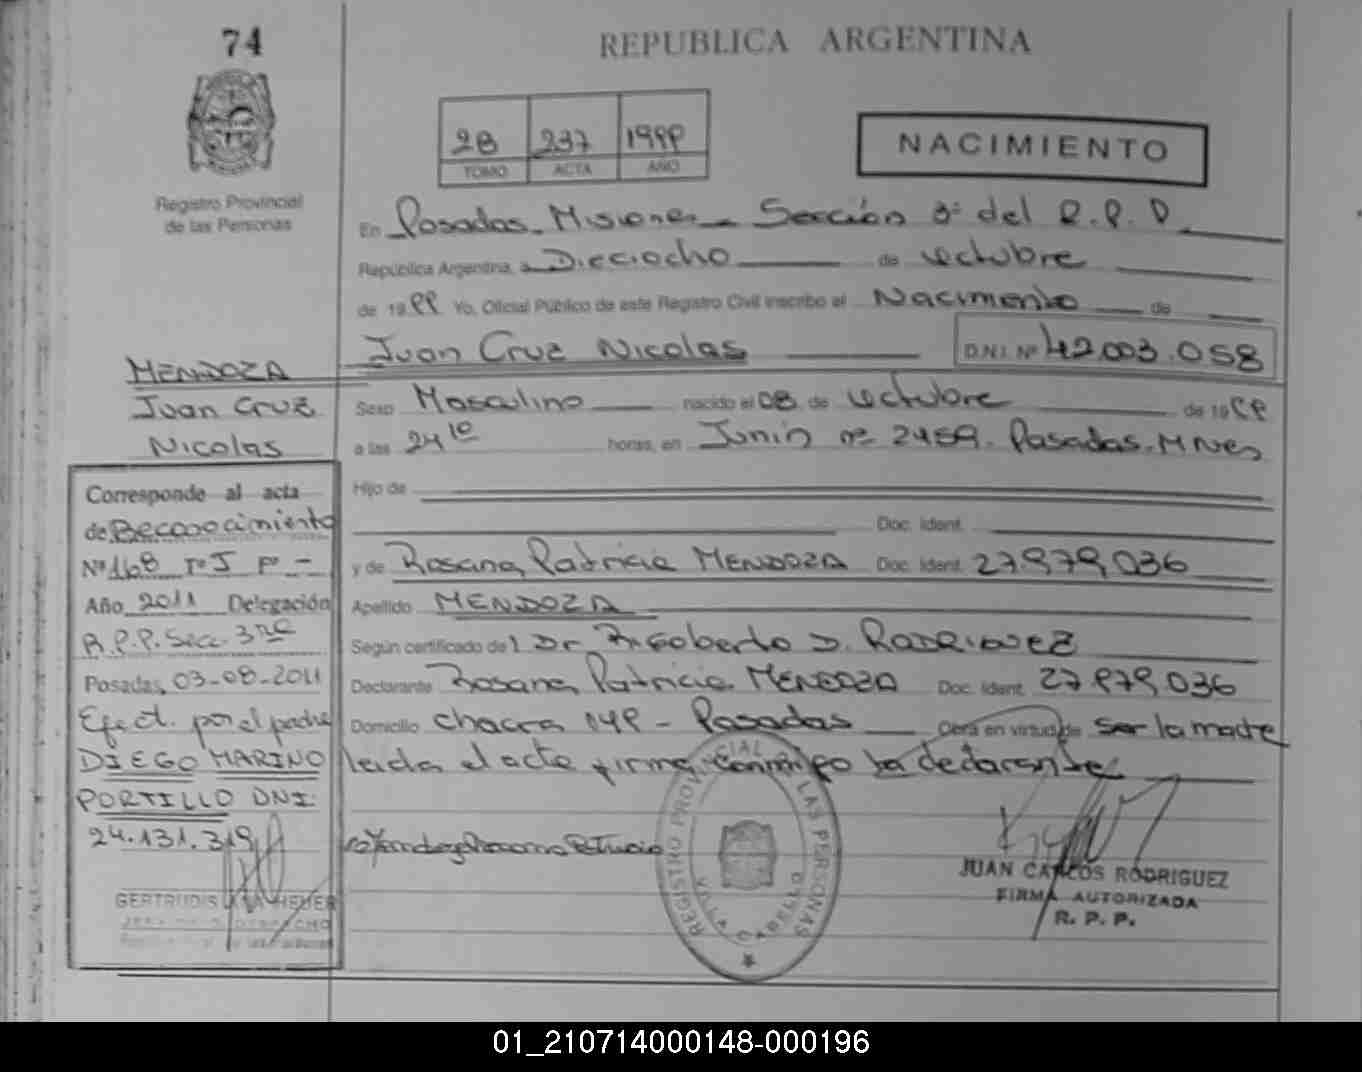 74
REPUBLICA ARGENTINA
Registro Provincial
de las Personas
2B 237 1999
TOMO ACTA AÑO
NACIMIENTO
En Posadas. Misiones. Sección 3ª del R. P. P.
República Argentina, a Dieciocho de octubre
de 1999 Yo, Oficial Público de este Registro Civil inscribo el Nacimiento de
Juan Cruz Nicolas D.N.I. Nº 42.003.058
Sexo Masculino nacido el 08 de octubre de 1999
a las 24 10 horas, en Junin nº 2459. Posadas. Mnes
Hijo de
Doc. Ident.
y de Rosana Patricia MENDOZA Doc. Ident. 27.979.036
Apellido MENDOZA
Según certificado de Dr. Rigoberto D. RODRIGUEZ
Declarante Rosana Patricia MENDOZA Doc. Ident. 27.979.036
Domicilio chacra 149 - Posadas Obra en virtud de ser la madre
leida el acta firma conmigo la declarante
MENDOZA
Juan Cruz
Nicolas
Corresponde al acta
de Reconocimiento
Nº 168 Tº I Fº -
Año 2011 Delegación
R.P.P. Secc. 3ra
Posadas, 03-08-2011
Efect. por el padre
DIEGO MARINO
PORTILLO DNI:
24.131.319
GERTRUDIS
REGISTRO PROVINCIAL DE LAS PERSONAS
VILLA CABELLO
JUAN CARLOS RODRIGUEZ
FIRMA AUTORIZADA
R. P. P.
01_210714000148-000196